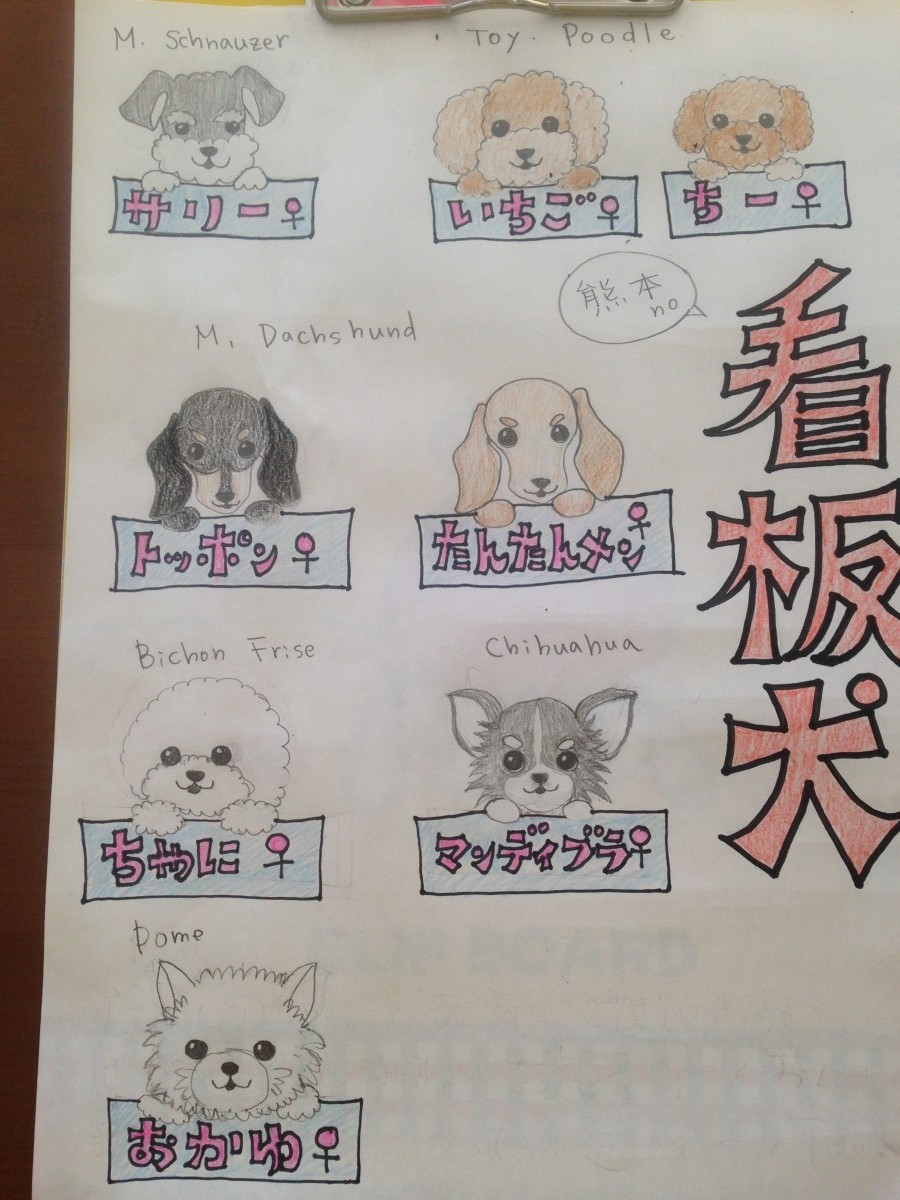 M. Schnauzer
Toy. Poodle
サリー♀
いちご♀
ちー♀
熊本
no
看板犬
M. Dachshund
トッポン♀
たんたんメン♀
Bichon Frise
Chihuahua
ちゃに♀
マンディブラ♀
Pome
おかゆ♀